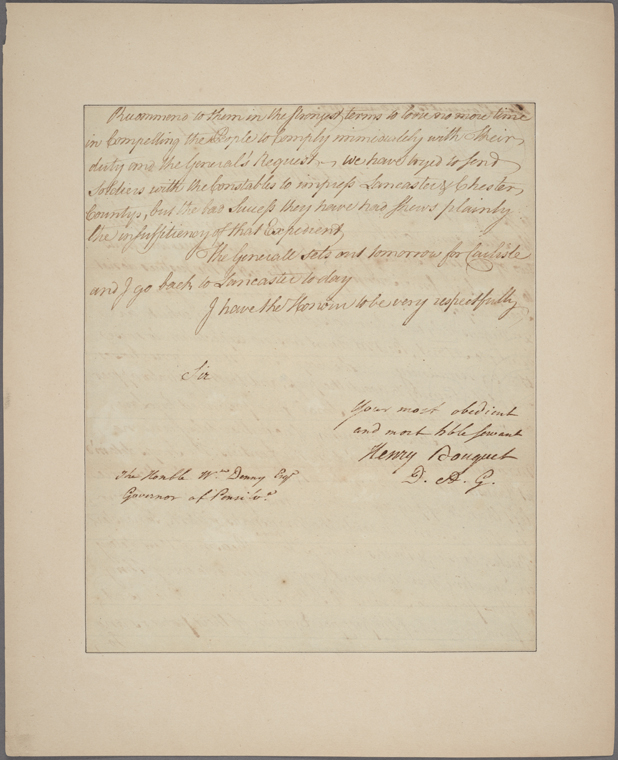 Recommend to them in the strongest terms to loose no more time
in Compelling the People to Comply immediately with their
duty and the General's Request, we have tryed to send
Soldiers with the Constables to impress Lancaster & Chester
Countys, but the bad Success they have had Shews plainly
the insuffitiency of that Expedient,
The Generale sets out tomorrow for Carlisle
and I go back to Lancaster to day
I have the Honour to be very respectfully
Sir
Your most obedient
and most hble servant
Henry Bouquet
D. A. G.
The Honble Wm Denny Esqr
Governor of Pensilva